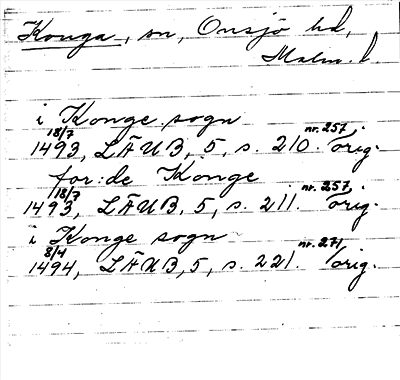 Konga, sn, Onsjö hd,
Malm. l.
i Konge sogn
18/7 nr. 257,
1493, LÄUB, 5, s. 210. orig.
for:de Konge
18/7 nr. 257,
1493, LÄUB, 5, s. 211. orig.
i Konge sogn
8/4 nr. 271,
1494, LÄUB, 5, s. 221. orig.